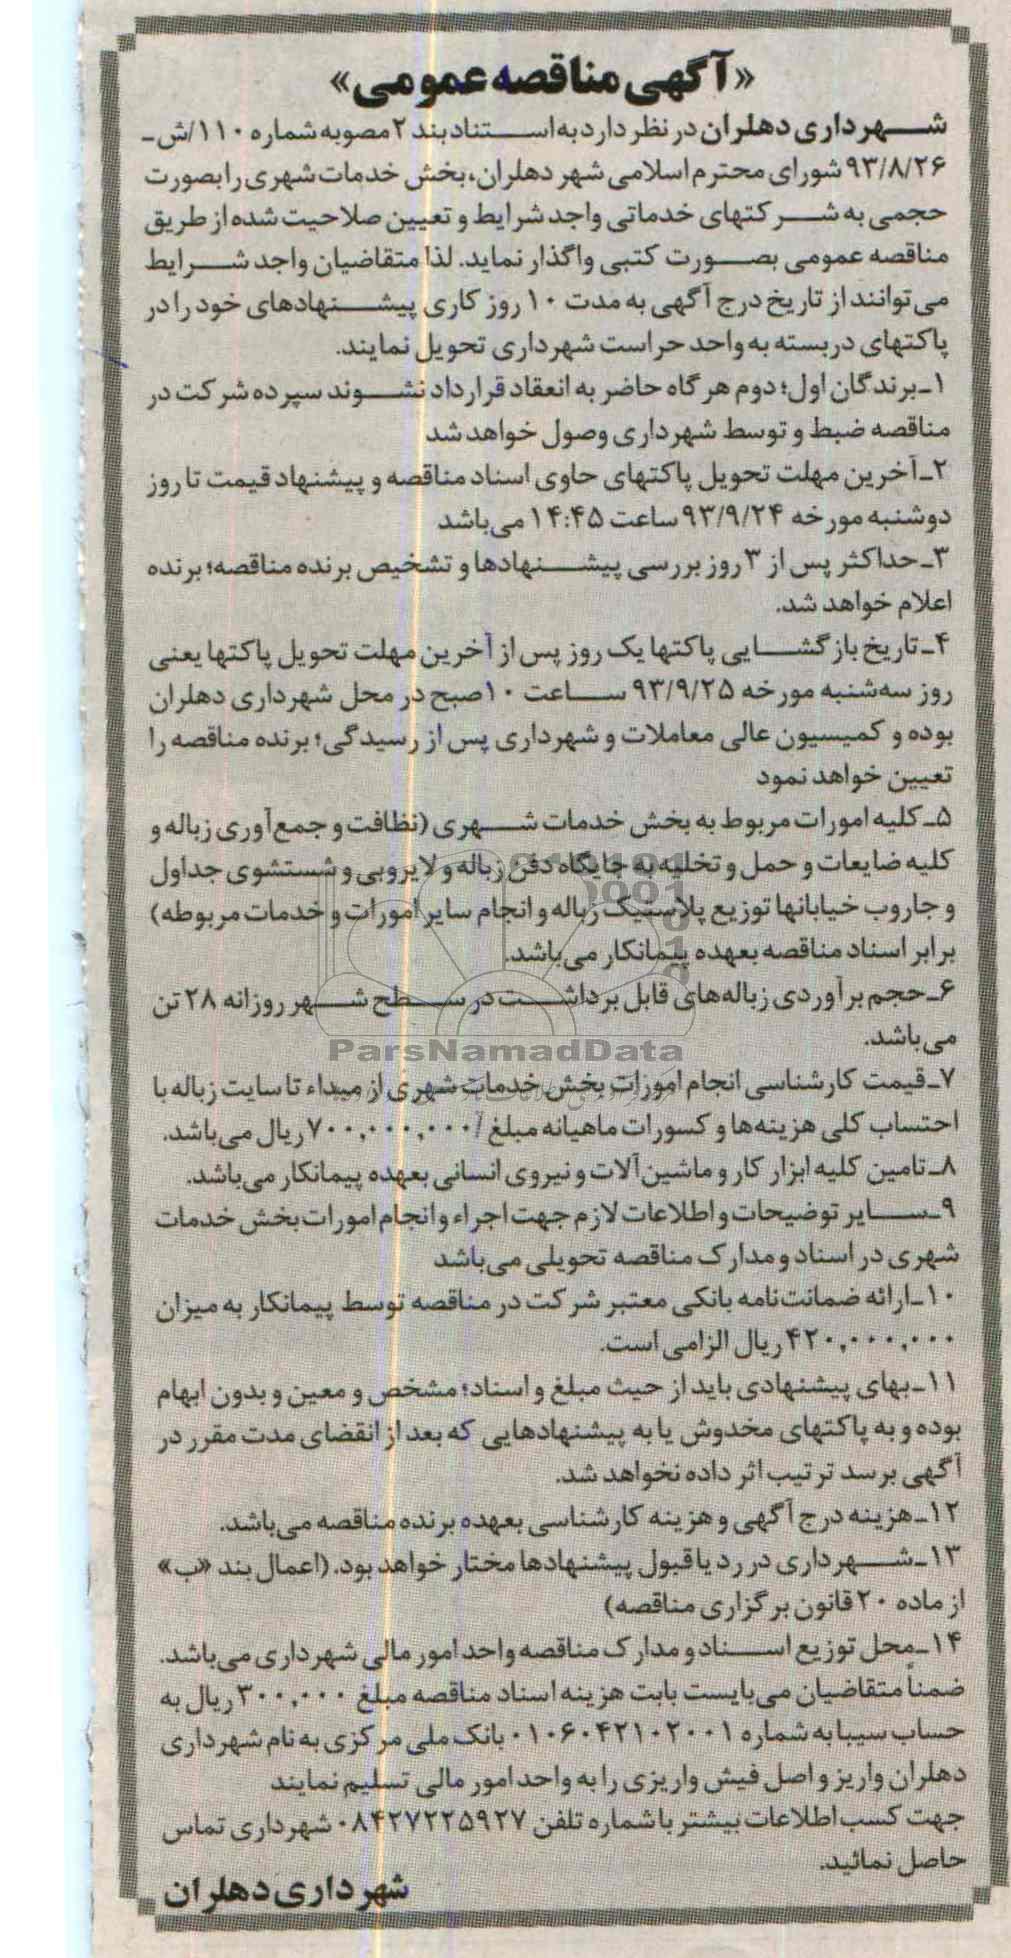 «آگهی مناقصه عمومی»
شهرداری دهلران در نظر دارد به استناد بند ۲ مصوبه شماره ۱۱۰/ش-
۹۳/۸/۲۶ شورای محترم اسلامی شهر دهلران، بخش خدمات شهری را بصورت
حجمی به شرکتهای خدماتی واجد شرایط و تعیین صلاحیت شده از طریق
مناقصه عمومی بصورت کتبی واگذار نماید. لذا متقاضیان واجد شرایط
می‌توانند از تاریخ درج آگهی به مدت ۱۰ روز کاری پیشنهادهای خود را در
پاکتهای دربسته به واحد حراست شهرداری تحویل نمایند.
۱-برندگان اول؛ دوم هرگاه حاضر به انعقاد قرارداد نشوند سپرده شرکت در
مناقصه ضبط و توسط شهرداری وصول خواهد شد
۲-آخرین مهلت تحویل پاکتهای حاوی اسناد مناقصه و پیشنهاد قیمت تا روز
دوشنبه مورخه ۹۳/۹/۲۴ ساعت ۱۴:۴۵ می‌باشد
۳-حداکثر پس از ۳ روز بررسی پیشنهادها و تشخیص برنده مناقصه؛ برنده
اعلام خواهد شد.
۴-تاریخ بازگشایی پاکتها یک روز پس از آخرین مهلت تحویل پاکتها یعنی
روز سه‌شنبه مورخه ۹۳/۹/۲۵ ساعت ۱۰ صبح در محل شهرداری دهلران
بوده و کمیسیون عالی معاملات و شهرداری پس از رسیدگی؛ برنده مناقصه را
تعیین خواهد نمود
۵-کلیه امورات مربوط به بخش خدمات شهری (نظافت و جمع‌آوری زباله و
کلیه ضایعات و حمل و تخلیه به جایگاه دفن زباله و لایروبی و شستشوی جداول
و جاروب خیابانها توزیع پلاستیک زباله و انجام سایر امورات و خدمات مربوطه)
برابر اسناد مناقصه بعهده پیمانکار می‌باشد.
۶-حجم برآوردی زباله‌های قابل برداشت در سطح شهر روزانه ۲۸ تن
می‌باشد.
ParsNamadData
۷-قیمت کارشناسی انجام امورات بخش خدمات شهری از مبداء تا سایت زباله با
احتساب کلی هزینه‌ها و کسورات ماهیانه مبلغ /۷۰۰,۰۰۰,۰۰۰ ریال می‌باشد.
۸-تامین کلیه ابزار کار و ماشین‌آلات و نیروی انسانی بعهده پیمانکار می‌باشد.
۹-سایر توضیحات و اطلاعات لازم جهت اجراء و انجام امورات بخش خدمات
شهری در اسناد و مدارک مناقصه تحویلی می‌باشد
۱۰-ارائه ضمانت‌نامه بانکی معتبر شرکت در مناقصه توسط پیمانکار به میزان
۴۲۰,۰۰۰,۰۰۰ ریال الزامی است.
۱۱-بهای پیشنهادی باید از حیث مبلغ و اسناد؛ مشخص و معین و بدون ابهام
بوده و به پاکتهای مخدوش یا به پیشنهادهایی که بعد از انقضای مدت مقرر در
آگهی برسد ترتیب اثر داده نخواهد شد.
۱۲-هزینه درج آگهی و هزینه کارشناسی بعهده برنده مناقصه می‌باشد.
۱۳-شهرداری در رد یا قبول پیشنهادها مختار خواهد بود. (اعمال بند «ب»
از ماده ۲۰ قانون برگزاری مناقصه)
۱۴-محل توزیع اسناد و مدارک مناقصه واحد امور مالی شهرداری می‌باشد.
ضمناً متقاضیان می‌بایست بابت هزینه اسناد مناقصه مبلغ ۳۰۰,۰۰۰ ریال به
حساب سیبا به شماره ۰۱۰۶۰۴۲۱۰۲۰۰۱ بانک ملی مرکزی به نام شهرداری
دهلران واریز و اصل فیش واریزی را به واحد امور مالی تسلیم نمایند
جهت کسب اطلاعات بیشتر با شماره تلفن ۰۸۴۲۷۲۲۵۹۲۷ شهرداری تماس
حاصل نمائید.
شهرداری دهلران